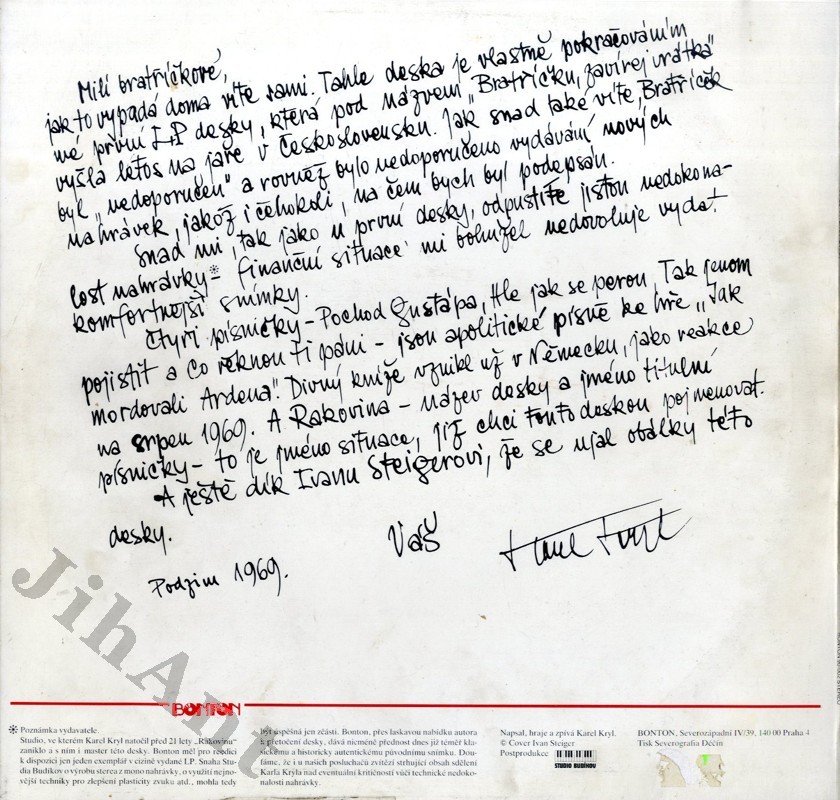 Milí bratříčkové,
jak to vypadá doma víte sami. Tahle deska je vlastně pokračováním
mé první LP desky, která pod názvem „Bratříčku, zavírej vrátka"
vyšla letos na jaře v Československu. Jak snad také víte, „Bratříček
byl „nedoporučen" a rovněž bylo nedoporučeno vydávání nových
nahrávek, jakož i čehokoli, na čem bych byl podepsán.
Snad mi, tak jako u první desky, odpustíte jistou nedokona-
lost nahrávky* - finanční situace mi bohužel nedovoluje vydat
komfortnější snímky.
Čtyři písničky - Pochod Gustápa, Hle jak se perou, Tak jenom
pojistit a Co řeknou ti páni - jsou apolitické písně ke hře „Jak
mordovali Ardena". Divný kníže vznikl už v Německu, jako reakce
na srpen 1969. A Rakovina - název desky a jméno titulní
písničky - to je jméno situace, jíž chci touto deskou pojmenovat.
A ještě dík Ivanu Steigerovi, že se ujal obálky této
desky.
Váš Karel Kryl
Podzim 1969.
JihAnt
BONTON
* Poznámka vydavatele.
Studio, ve kterém Karel Kryl natočil před 21 lety „Rakovinu"
zaniklo a s ním i master této desky. Bonton měl pro reedici
k dispozici jen jeden exemplář v cizině vydané LP. Snaha Stu-
dia Budíkov o výrobu sterea z mono nahrávky, o využití nejno-
vější techniky pro zlepšení plasticity zvuku atd., mohla tedy
být úspěšná jen zčásti. Bonton, přes laskavou nabídku autora
k přetočení desky, dává nicméně přednost dnes již téměř kla-
sickému a historicky autentickému původnímu snímku. Dou-
fáme, že i u našich posluchačů zvítězí strhující obsah sdělení
Karla Kryla nad eventuální kritičností vůči technické nedoko-
nalosti nahrávky.
Napsal, hraje a zpívá Karel Kryl.
© Cover Ivan Steiger
Postprodukce
STUDIO BUDÍKOV
BONTON, Severozápadní IV/39, 140 00 Praha 4
Tisk Severografia Děčín